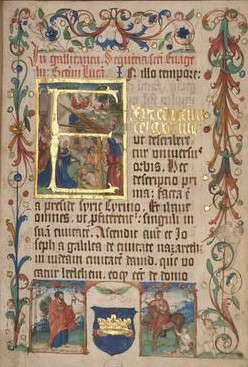 In gallicantu. Sequentia sc̃i euãge
Scdm Lucã. In illo tempore.
Exiit edictum
a cesare au
ut describere
tur uniuersus
orbis. Hec
descriptio pri
ma: facta ē
a preside syrie Cyrino. Et ibant
omnes. ut ꝓfiterent᷑. singuli in
suã ciuitatē. Ascendit aut̃ et Jo
seph a galilea de ciuitate nazareth:
in iudeam ciuitatē dauid. que vo
catur bethleem. eo ꝙ eēt de domo